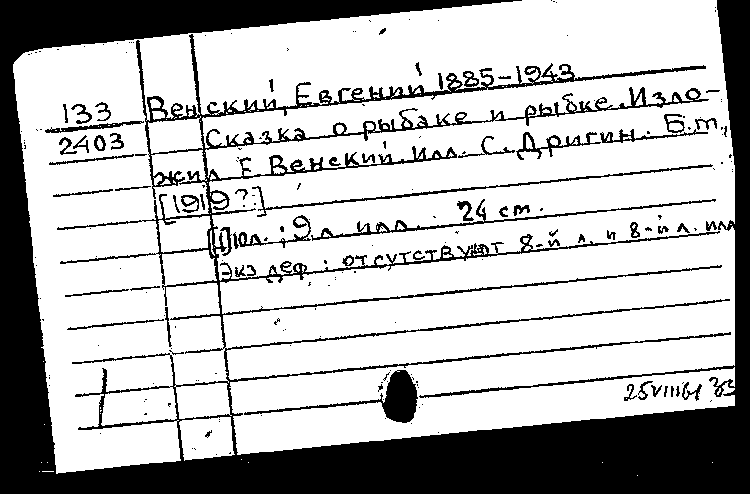 133 Венский, Евгений, 1885-1943
2403 Сказка о рыбаке и рыбке. Изло-
жил Е Венский. Илл. С. Дригин. Б.m,
[1919?]
10л.; 9 л илл. 24 cm.
Экз деф: отсутствуют 8-й л. и 8-й л. илл
25 VIII 61